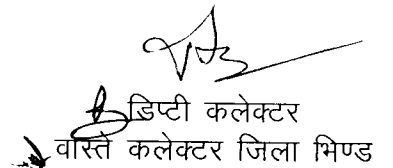 डिप्टी कलेक्टर
वास्ते कलेक्टर जिला भिण्ड